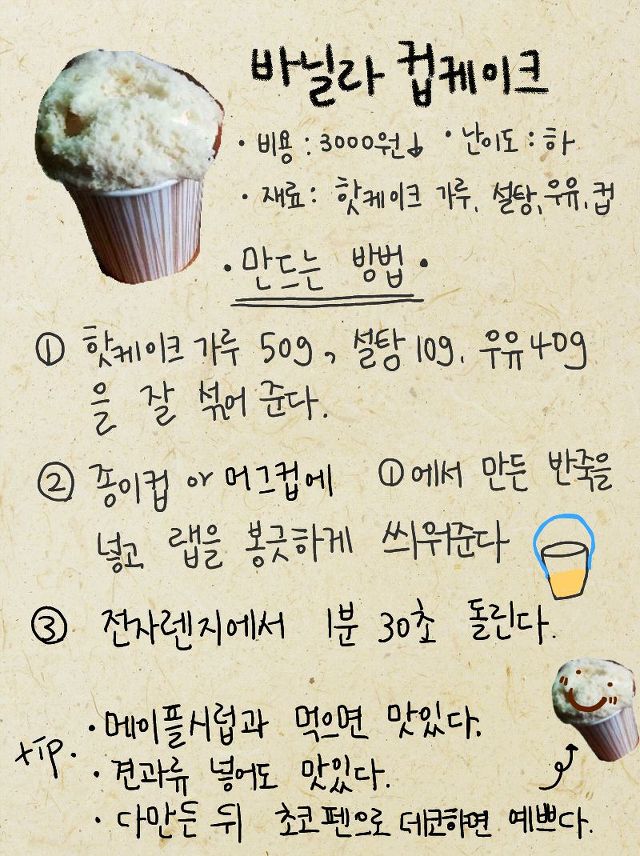 바닐라 컵케이크
· 비용 : 3000원↓ · 난이도 : 하
· 재료 : 핫케이크 가루, 설탕, 우유, 컵
· 만드는 방법 ·
① 핫케이크 가루 50g, 설탕 10g, 우유 40g
을 잘 섞어 준다.
② 종이컵 or 머그컵에 ①에서 만든 반죽을
넣고 랩을 봉긋하게 씌워준다
③ 전자렌지에서 1분 30초 돌린다.
tip.
· 메이플시럽과 먹으면 맛있다.
· 견과류 넣어도 맛있다.
· 다만든 뒤 초코펜으로 데코하면 예쁘다.